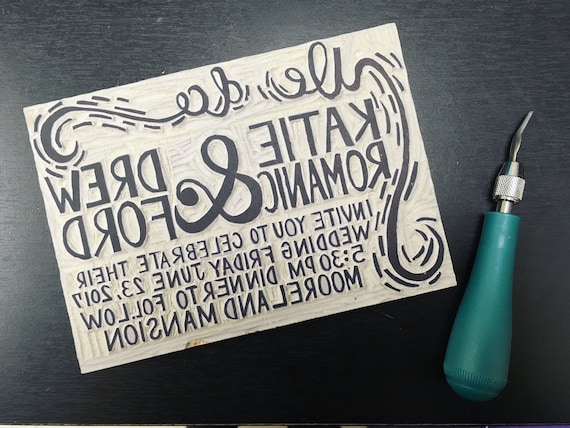 We do
KATIE ROMANIC
&
DREW FORD
INVITE YOU TO CELEBRATE THEIR
WEDDING FRIDAY JUNE 23, 2017
5:30 PM DINNER TO FOLLOW
MOORELAND MANSION